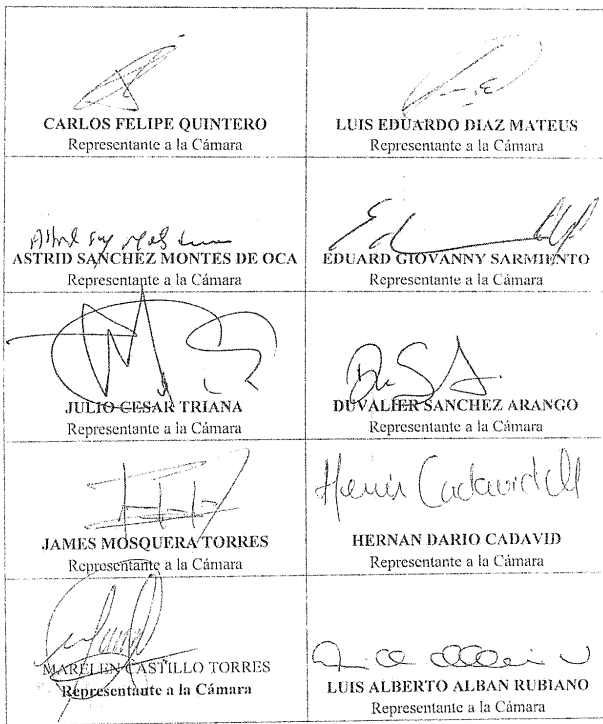 CARLOS FELIPE QUINTERO
Representante a la Cámara
LUIS EDUARDO DIAZ MATEUS
Representante a la Cámara
ASTRID SANCHEZ MONTES DE OCA
Representante a la Cámara
EDUARD GIOVANNY SARMIENTO
Representante a la Cámara
JULIO CESAR TRIANA
Representante a la Cámara
DUVALIER SANCHEZ ARANGO
Representante a la Cámara
JAMES MOSQUERA TORRES
Representante a la Cámara
Hernán Cadavid
HERNAN DARIO CADAVID
Representante a la Cámara
MARELEN CASTILLO TORRES
Representante a la Cámara
LUIS ALBERTO ALBAN RUBIANO
Representante a la Cámara